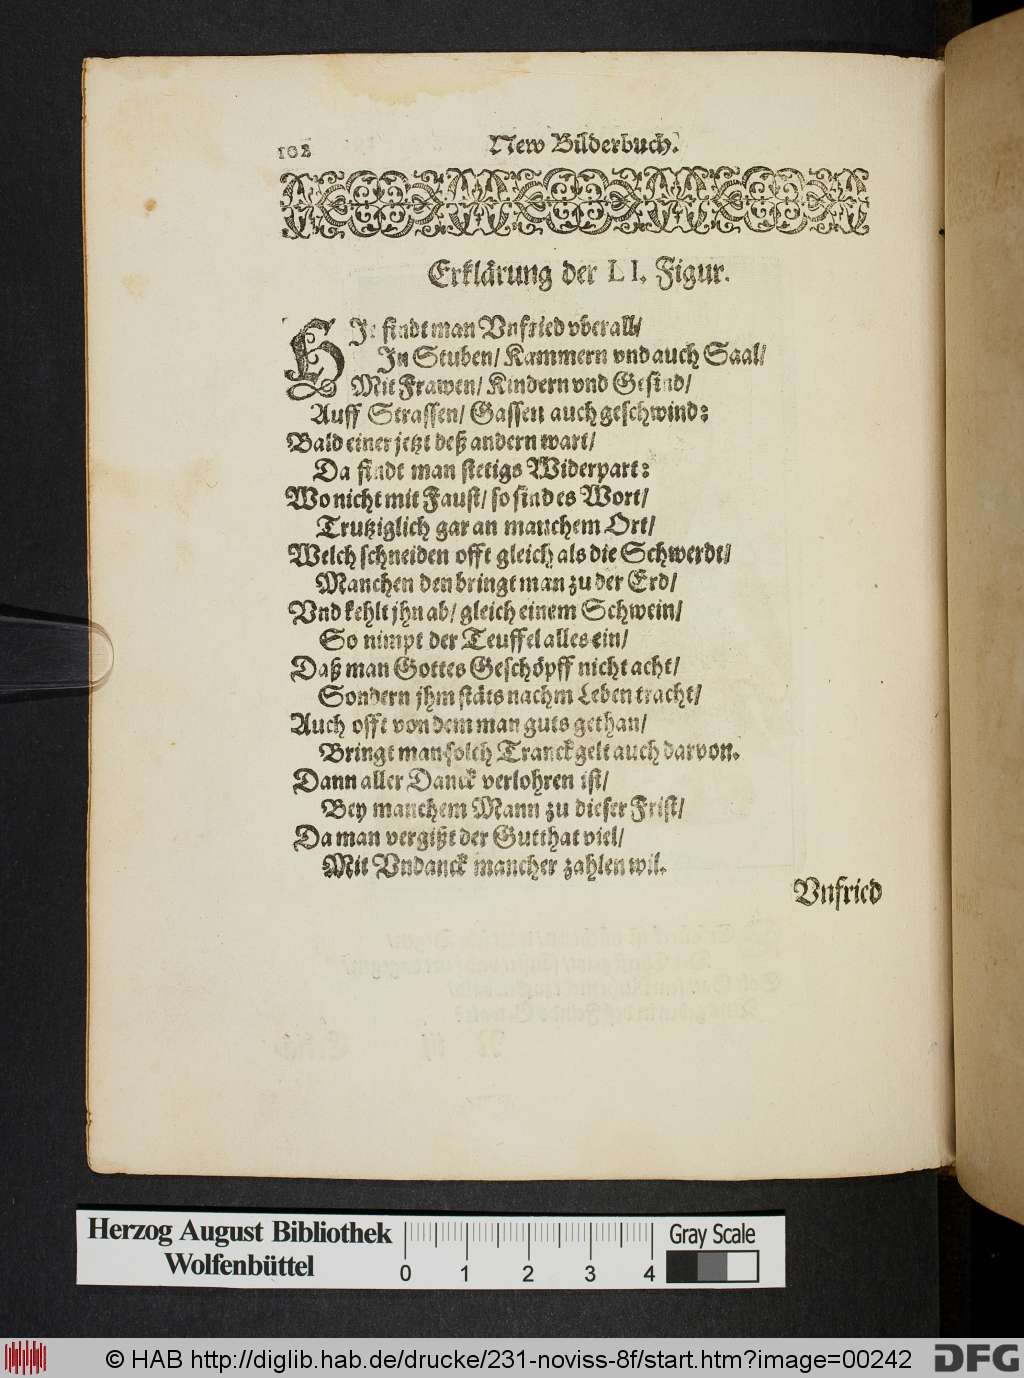 102
New Bilderbuch.
Erklärung der LI. Figur.
HIe findt man Vnfried vberall/
In Stuben/ Kammern vnd auch Saal/
Mit Frawen/ Kindern vnd Gesind/
Auff Strassen/ Gassen auch geschwind:
Bald einer jetzt deß andern wart/
Da findt man stetigs Widerpart:
Wo nicht mit Faust/ so sind es Wort/
Trutziglich gar an manchem Ort/
Welch schneiden offt gleich als die Schwerdt/
Manchen den bringt man zu der Erd/
Vnd kehlt jhn ab/ gleich einem Schwein/
So nimpt der Teuffel alles ein/
Daß man Gottes Geschöpff nicht acht/
Sondern jhm stäts nachm Leben tracht/
Auch offt von dem man guts gethan/
Bringt man solch Tranckgelt auch darvon.
Dann aller Danck verlohren ist/
Bey manchem Mann zu dieser Frist/
Da man vergißt der Gutthat viel/
Mit Vndanck mancher zahlen wil.
Vnfried
Herzog August Bibliothek
Wolfenbüttel
0 1 2 3 4
Gray Scale
© HAB http://diglib.hab.de/drucke/231-noviss-8f/start.htm?image=00242
DFG